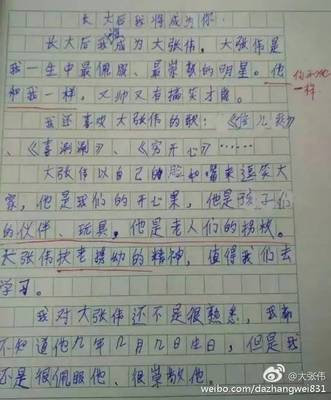 长大后我将成为你
长大后我将成为大张伟。大张伟是
我一生中最佩服、最崇敬的明星。他
和我一样，又帅又有搞笑才能。
一样
我还喜欢大张伟的歌：
、《喜涮涮》、《穷开心》……
大张伟以自己的脸和嘴来逗笑大
家，他是我们的开心果，他是孩子们
的伙伴、玩具，他是老人们的拐杖。
大张伟扶老携幼的精神，值得我们去
学习。
我对大张伟还不是很熟悉，我都
不知道他几年几月几日生日，但是我
还是很佩服他、很崇敬他。
@大张伟
weibo.com/dazhangwei831